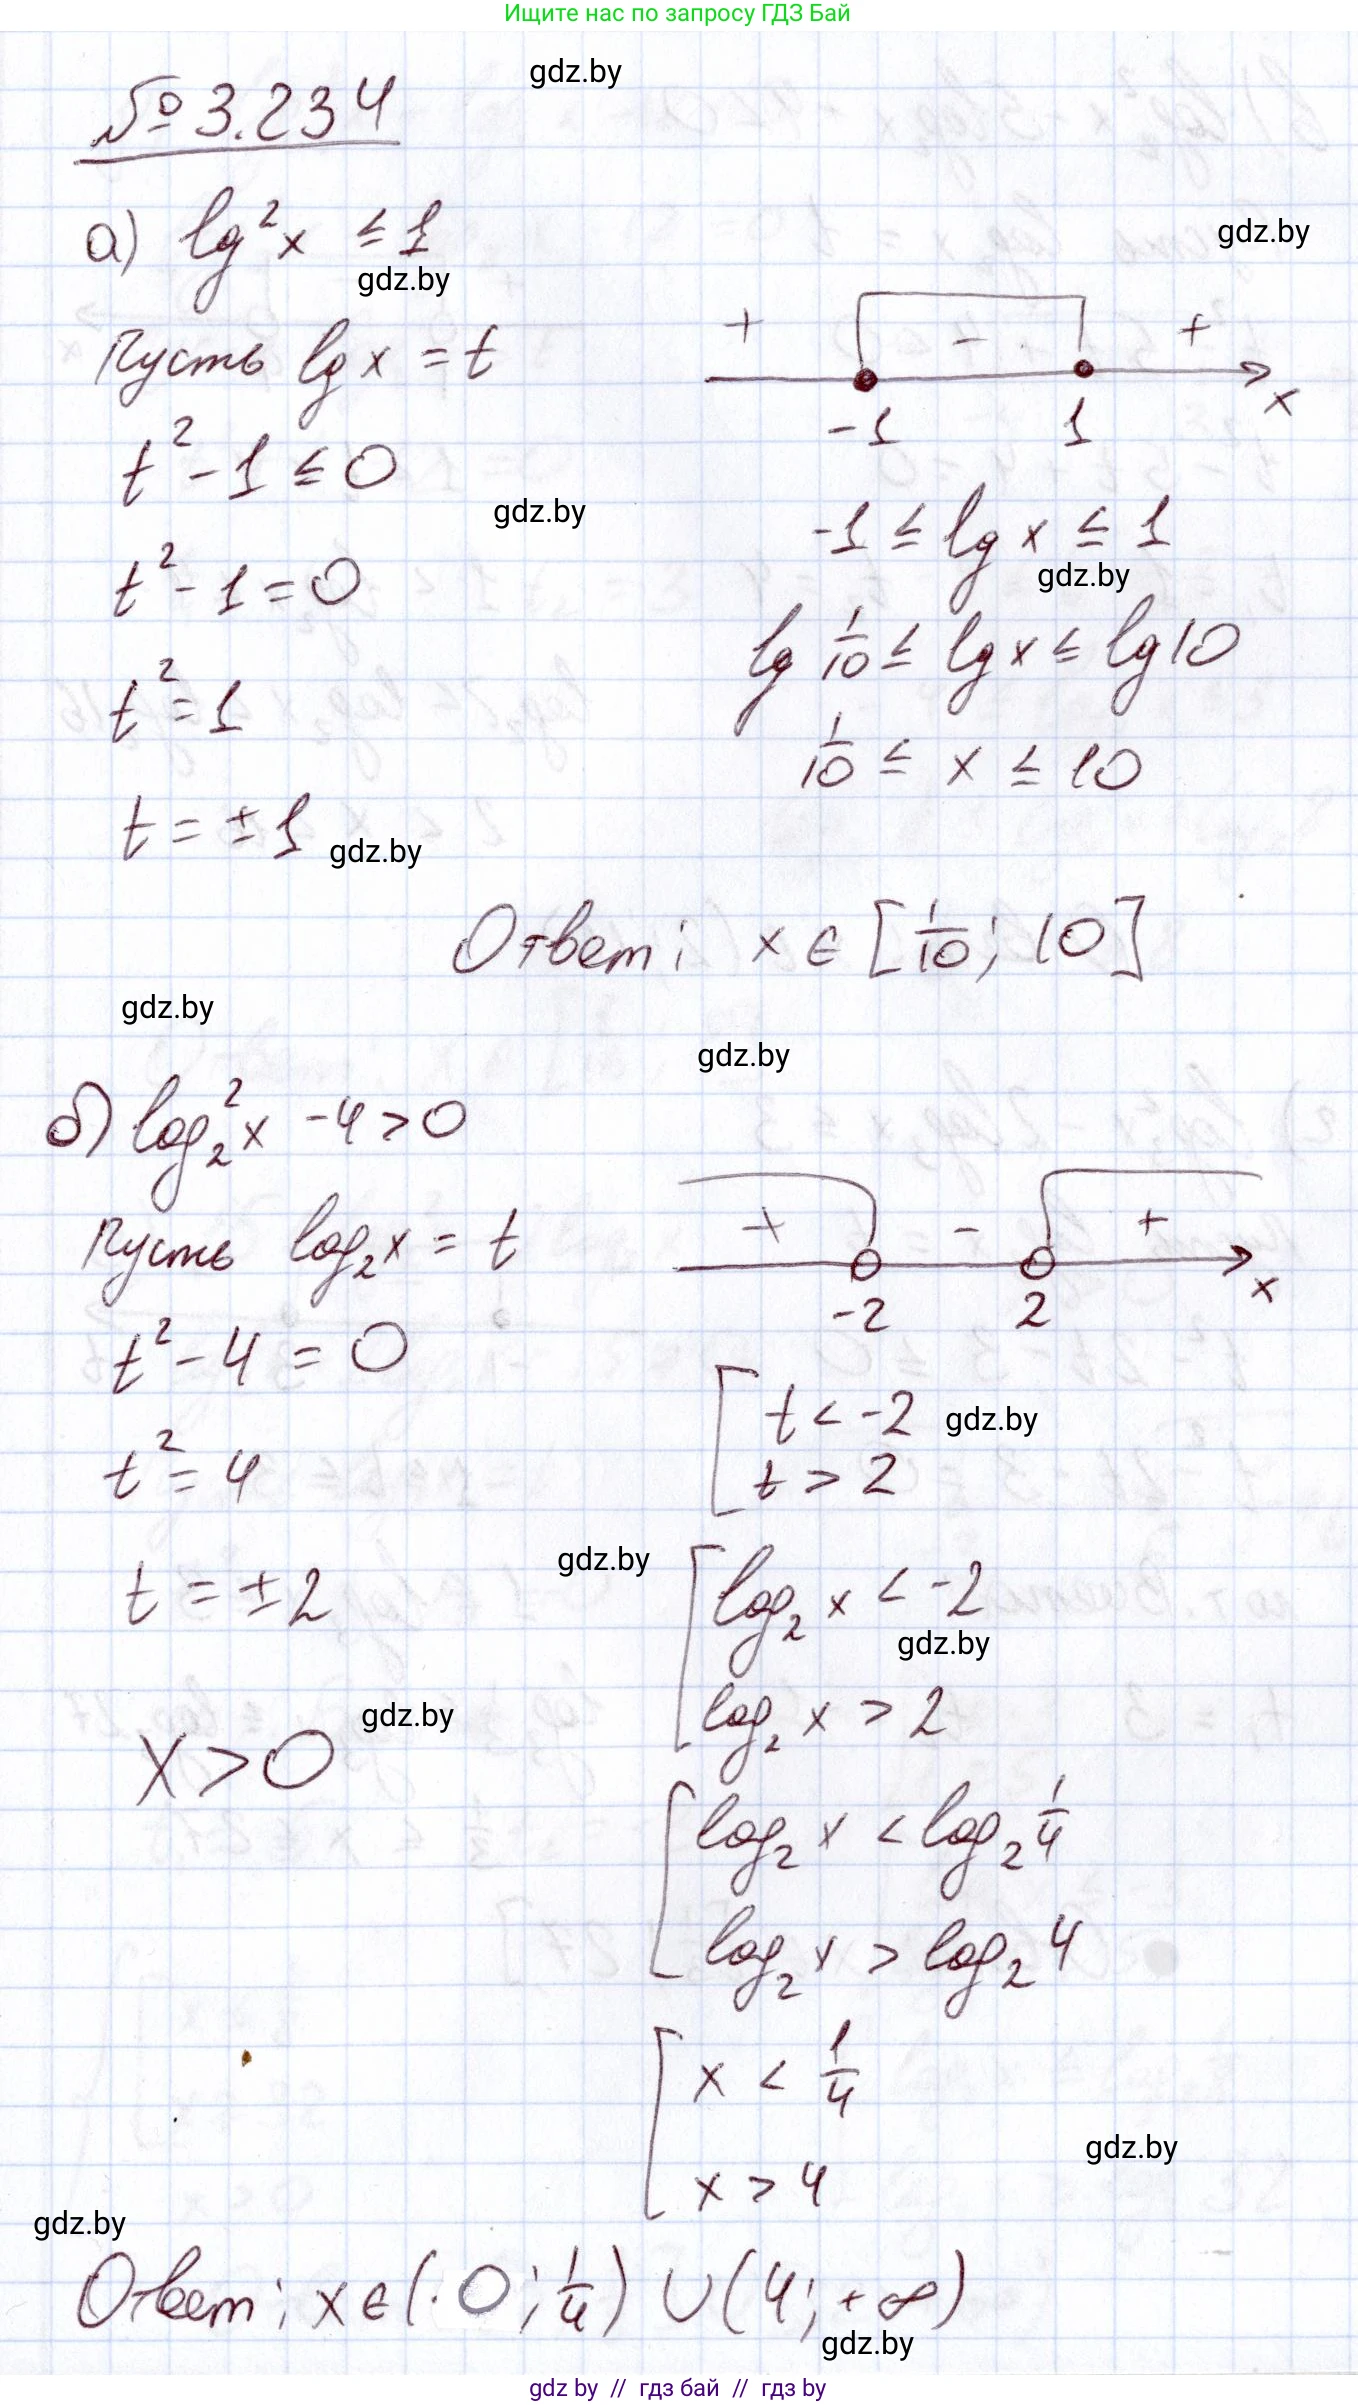 Ищите нас по запросу ГДЗ Бай
gdz.by
№ 3.234
а) lg²x ≤ 1
gdz.by
gdz.by
Пусть lg x = t
t² - 1 ≤ 0
gdz.by
t² - 1 = 0
t² = 1
t = ± 1
gdz.by
+ - +
-1 1 x
-1 ≤ lg x ≤ 1
gdz.by
lg 1/10 ≤ lg x ≤ lg 10
1/10 ≤ x ≤ 10
Ответ; x ∈ [1/10; 10]
gdz.by
gdz.by
б) log₂²x - 4 > 0
Пусть log₂x = t
t² - 4 = 0
t² = 4
t = ± 2
gdz.by
x > 0
+ - +
-2 2 x
[ t < -2
gdz.by
t > 2
gdz.by
[ log₂ x < -2
gdz.by
log₂ x > 2
[ log₂ x < log₂ 1/4
log₂ x > log₂ 4
[ x < 1/4
x > 4
gdz.by
gdz.by
Ответ; x ∈ (0; 1/4) ∪ (4; +∞)
gdz.by
gdz by // гдз бай // гдз by